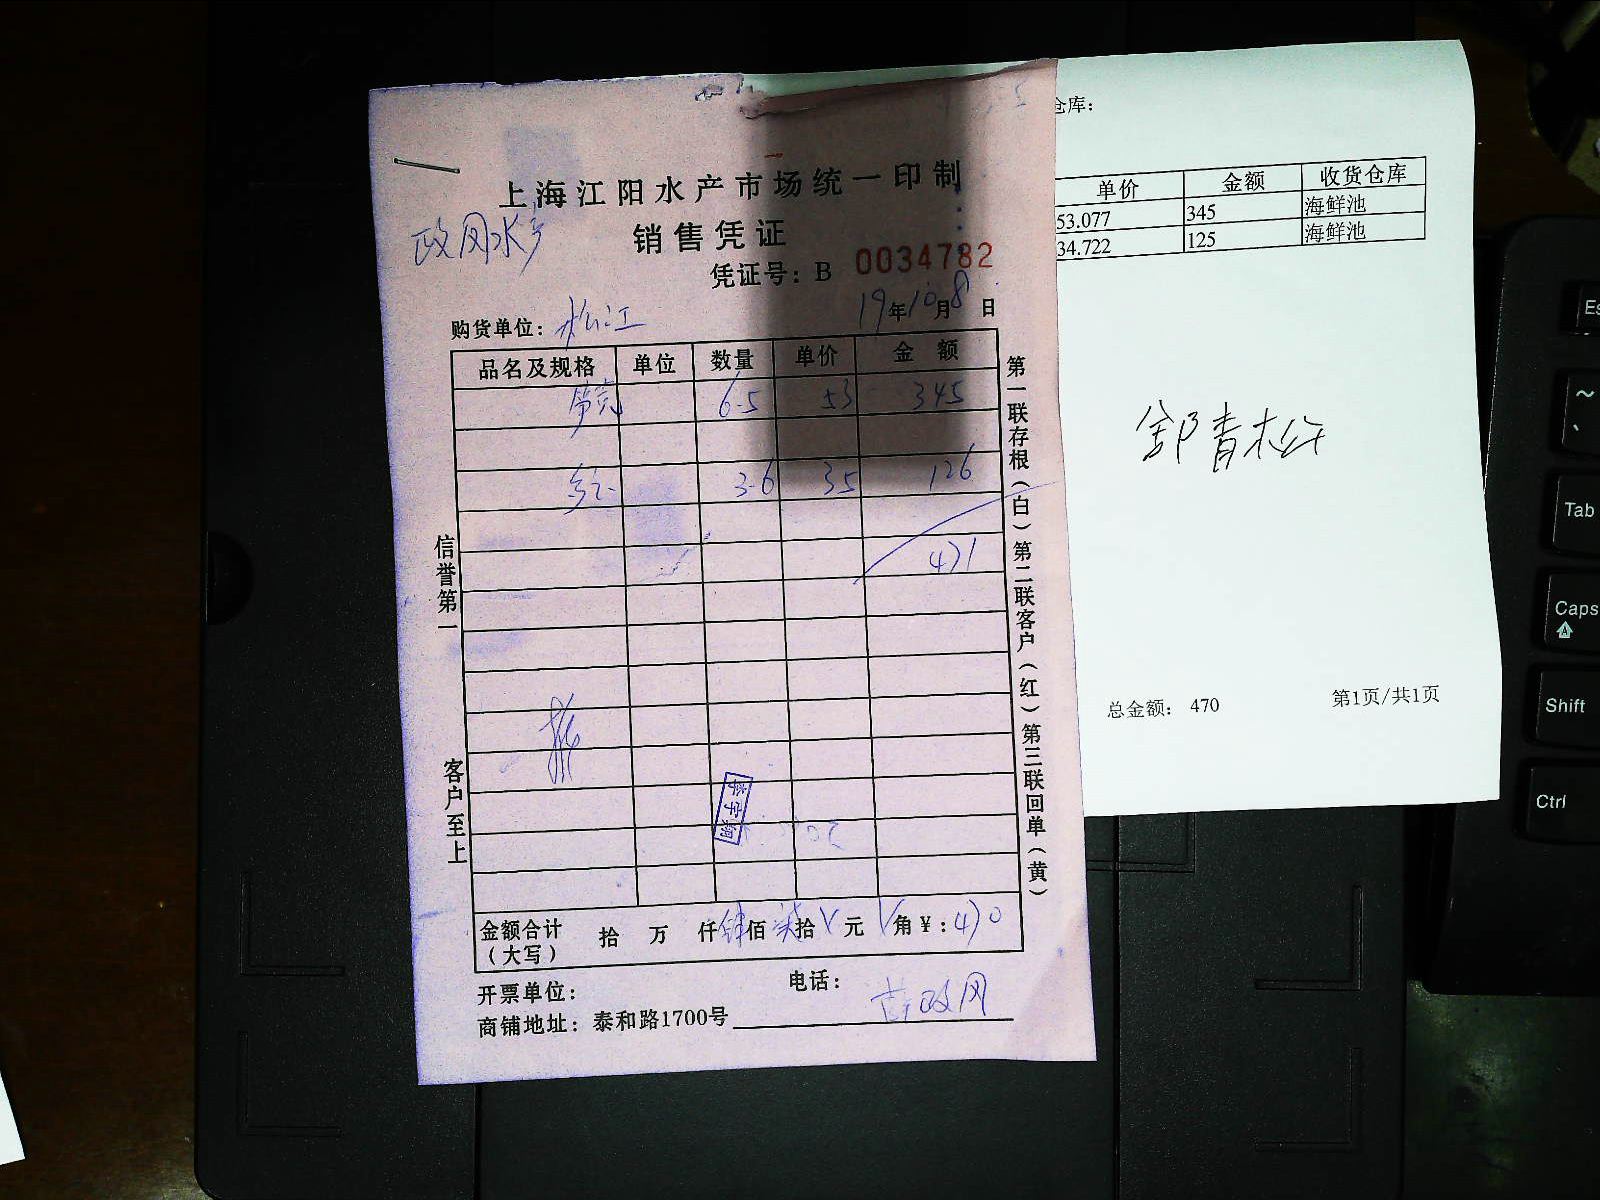 上海江阳水产市场统一印制
政风水产
销售凭证
凭证号：B 0034782
购货单位：松江 19年10月8日
品名及规格 单位 数量 单价 金额
6.5 53 345
3.6 35 126
471
金额合计（大写） 拾 万 仟肆佰柒拾 元 角￥：470
开票单位： 电话：
商铺地址：泰和路1700号
政风
信誉第一
客户至上
第一联存根（白）第二联客户（红）第三联回单（黄）
李宇翔
仓库：
单价 金额 收货仓库
53.077 345 海鲜池
34.722 125 海鲜池
邹青松
总金额： 470 第1页/共1页
Tab
Caps
Shift
Ctrl